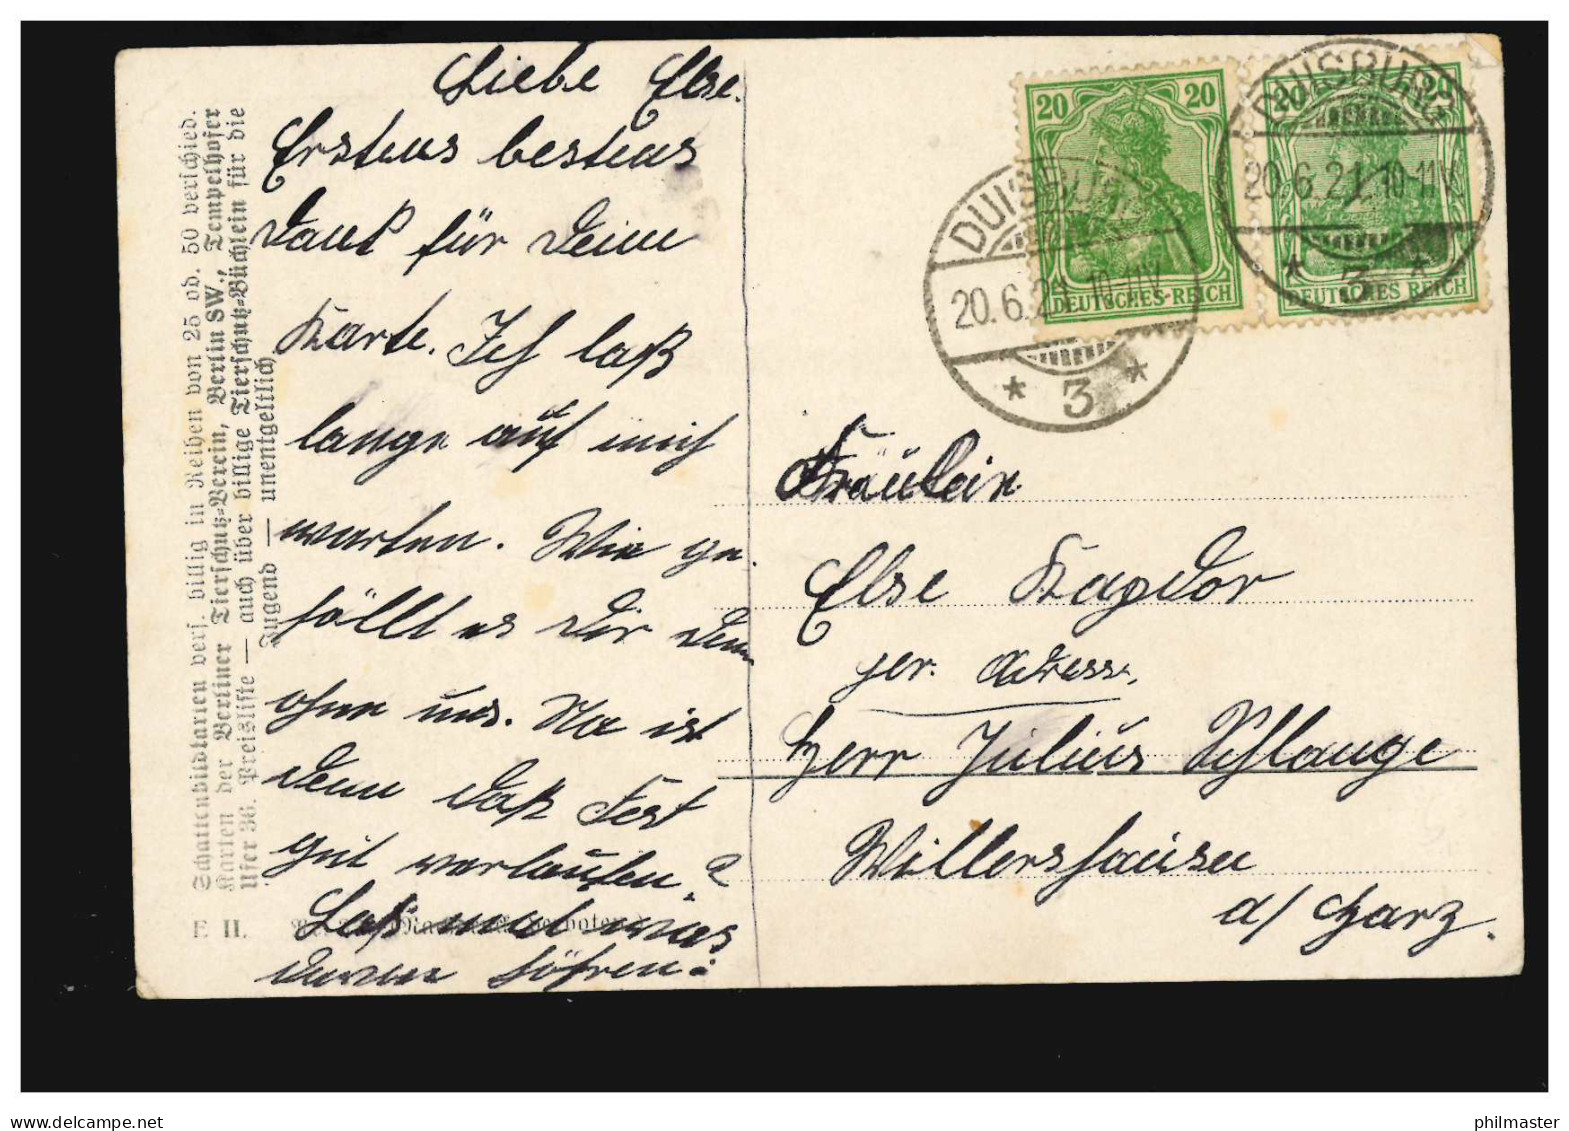 Liebe Else.
Erstens bestens
Dank für Deine
Karte. Ich laß
lange auf mich
warten. Wie ge-
fällt es Dir denn
ohne uns. Na ist
denn daß Fest
gut verlaufen?
Laß mal was
davon hören.
Schattenbildkarten versch. billig in Reihen von 25 od. 50 verschied.
Karten der Berliner Tierschutz-Verein, Berlin SW., Tempelhofer
Ufer 36. Preisliste — auch über billige Tierschutz-Büchlein für die
Jugend — unentgeltlich
F. II.
20 20
DEUTSCHES REICH
20 20
DEUTSCHES REICH
DUISBURG
20.6.21. 10-11V
* 3 *
DUISBURG
20.6.21. 10-11V
* 3 *
Fräulein
Else Kapdor
per. Adresse.
Herr Julius Schlange
Willershausen
a/ Harz.
delcampe.net
philmaster